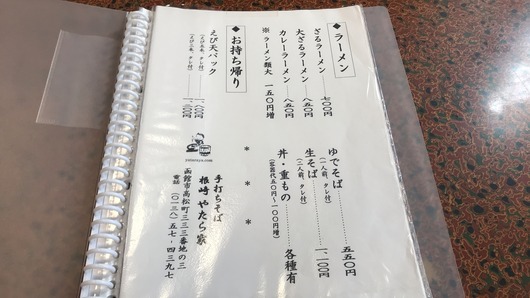 ◆ ラーメン
ざるラーメン 七〇〇円
大ざるラーメン 八五〇円
カレーラーメン 八五〇円
※ ラーメン類大 一五〇円増
◆ お持ち帰り
ゆでそば 五五〇円
(一人前、タレ付)
生そば 一、一〇〇円
(二人前、タレ付)
丼・重もの 各種有
(容器代五〇円〜一〇〇円増)
えび天パック
* * *
手打ちそば
根崎 やたら家
函館市高松町三三三番地の三
電話 (〇一三八) 五七-四三九七
yataraya.com